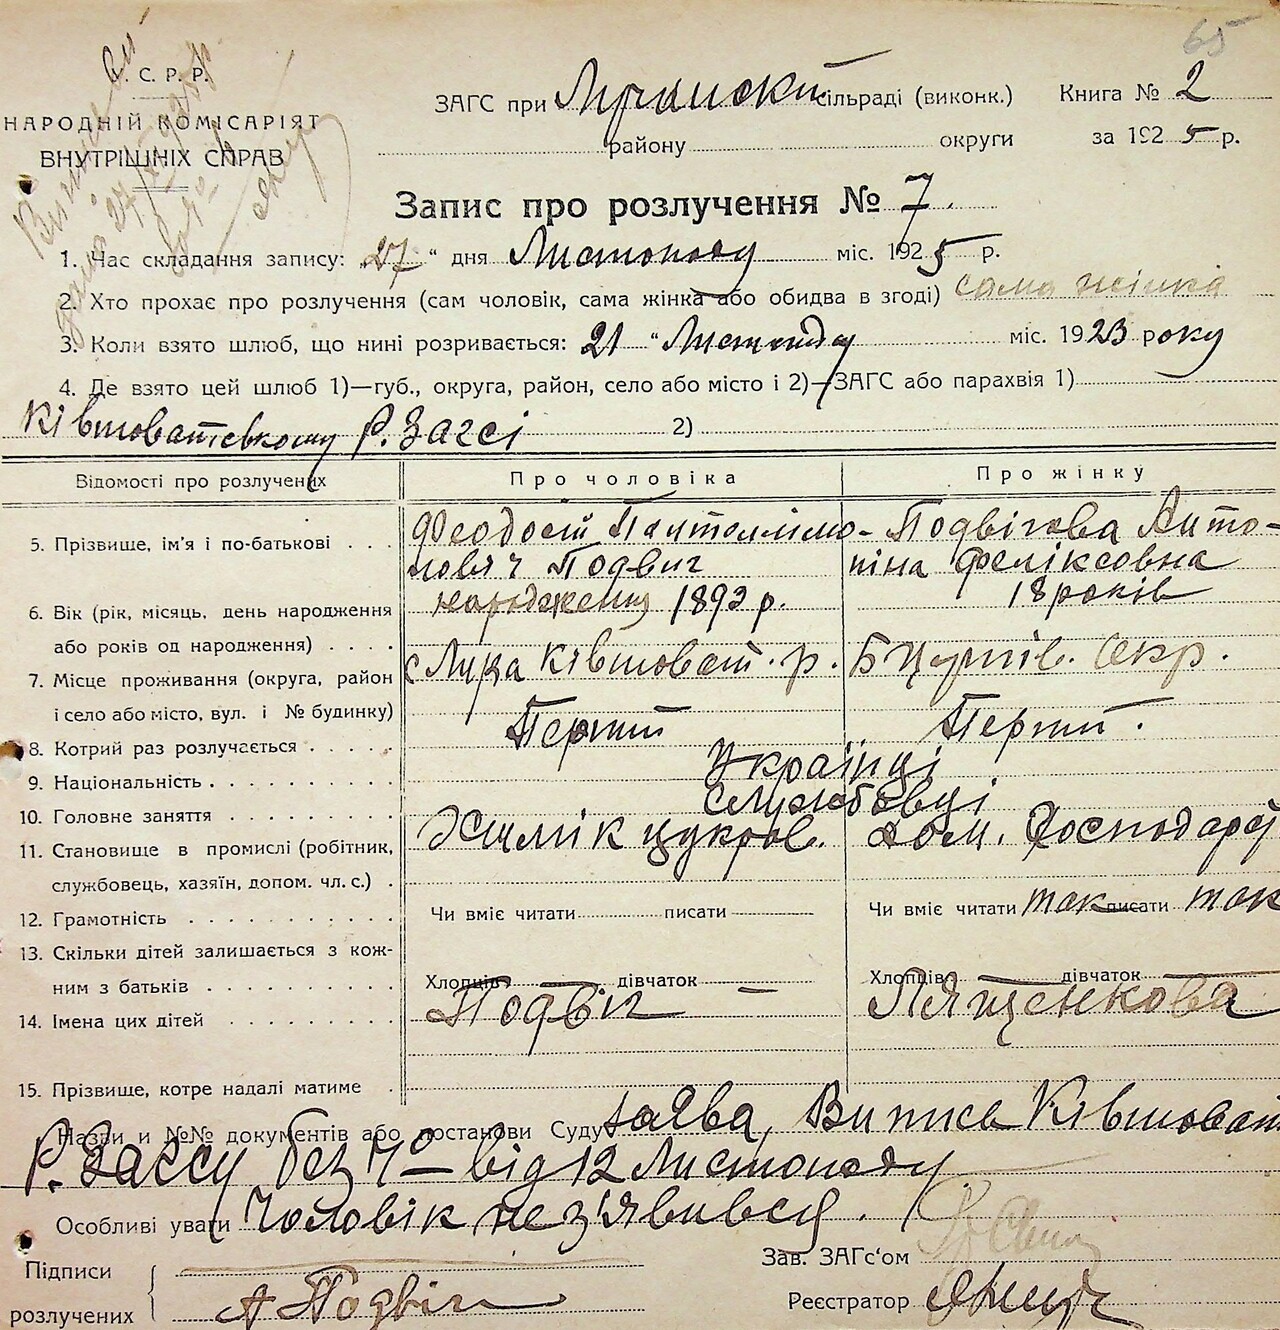 65
У. С. Р. Р.
НАРОДНІЙ КОМІСАРІЯТ
ВНУТРІШНІХ СПРАВ
ЗАГС при сільраді (виконк.) Книга № 2
району округи за 1925 р.
Запис про розлучення № 7.
1. Час складання запису: „27" дня Листопаду міс. 1925 р.
2. Хто прохає про розлучення (сам чоловік, сама жінка або обидва в згоді) сама жінка
3. Коли взято шлюб, що нині розривається: 21 " Листопаду міс. 1923 року
4. Де взято цей шлюб 1)—губ., округа, район, село або місто і 2)—ЗАГС або парахвія 1)
Ківшоватському Р. Загсі 2)
Відомості про розлучених Про чоловіка Про жінку
5. Прізвище, ім'я і по-батькові . . . Феодосій Пантелімо- Подвігова Анто-
новіч Подвиг ніна Феліксовна
6. Вік (рік, місяць, день народження народження 1892 р. 18 років
або років од народження) . . . .
7. Місце проживання (округа, район с Лука Ківшоват. р. Б Церків. Окр.
і село або місто, вул. і № будинку)
8. Котрий раз розлучається . . . . . Перший Перший.
9. Національність . . . . . . . . . Українці
10. Головне заняття . . . . . . . . . службовці
11. Становище в промислі (робітник, Хімік цукров. Дом. Господарці
службовець, хазяїн, допом. чл. с.) .
12. Грамотність . . . . . . . . . . . Чи вміє читати писати Чи вміє читати так писати так
13. Скільки дітей залишається з кож-
ним з батьків . . . . . . . . . . Хлопців — дівчаток — Хлопців — дівчаток —
14. Імена цих дітей . . . . . . . . . Подвіг Лященкова
15. Прізвище, котре надалі матиме .
Назви и №№ документів або постанови Суду Заява, Випись Ківшоват
Р. Загсу без № від 12 Листопаду
Особливі уваги Чоловік нез'явився.
Зав. ЗАГс'ом
Підписи
розлучених А Подвіг Реєстратор